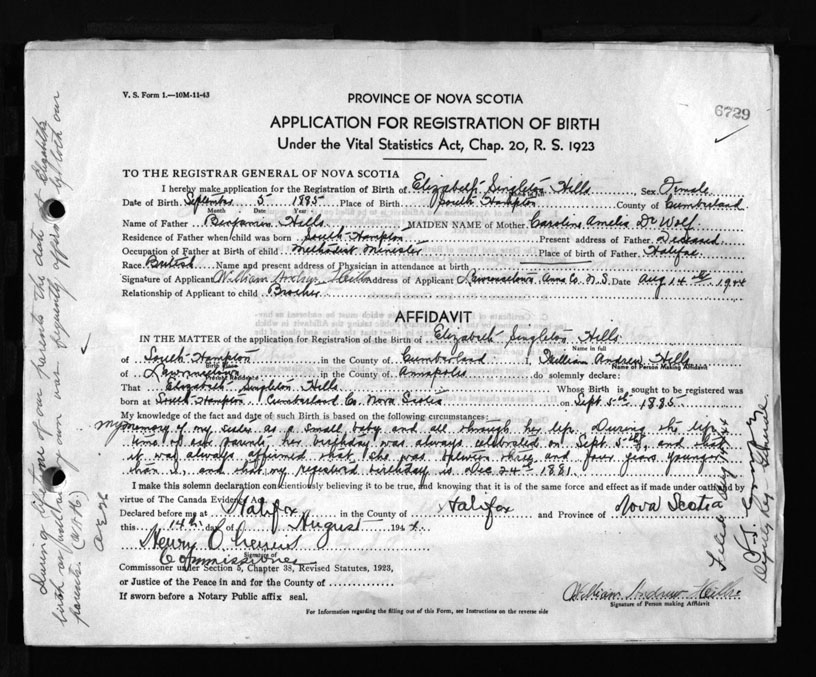 V. S. Form 1.—10M-11-43
PROVINCE OF NOVA SCOTIA
6729
APPLICATION FOR REGISTRATION OF BIRTH
Under the Vital Statistics Act, Chap. 20, R. S. 1923
TO THE REGISTRAR GENERAL OF NOVA SCOTIA
I hereby make application for the Registration of Birth of Elizabeth Singleton Hills Sex Female
Date of Birth September 5 1885 Place of Birth South Hampton County of Cumberland
Month Date Year
Name of Father Benjamin Hills MAIDEN NAME of Mother Caroline Amelia De Wolf
Residence of Father when child was born South Hampton Present address of Father Deceased
Occupation of Father at Birth of child Methodist Minister Place of birth of Father Halifax
Race British Name and present address of Physician in attendance at birth
Signature of Applicant William Andrew Hills Address of Applicant Lawrencetown Anna Co. N.S. Date Aug 14th 1944
Relationship of Applicant to child Brother
AFFIDAVIT
IN THE MATTER of the application for Registration of the Birth of Elizabeth Singleton Hills
Name in full
of South Hampton in the County of Cumberland I, William Andrew Hills
Birth Place Name of Person Making Affidavit
of Lawrencetown in the County of Annapolis do solemnly declare:
Present Residence
That Elizabeth Singleton Hills Whose Birth is sought to be registered was
born at South Hampton Cumberland Co. Nova Scotia on Sept. 5th 1885
My knowledge of the fact and date of such Birth is based on the following circumstances:
My memory of my sister as a small baby and all through her life. During the life
time of our parents her birthday was always celebrated on Sept. 5th, and that
it was always affirmed that she was between three and four years younger
than I, and that my registered birthday is Dec 24th 1881
I make this solemn declaration conscientiously believing it to be true, and knowing that it is of the same force and effect as if made under oath and by
virtue of The Canada Evidence Act.
Declared before me at Halifax in the County of Halifax and Province of Nova Scotia
this 14th day of August 1944
Henry O
Signature of
Commissioner
Commissioner under Section 5, Chapter 38, Revised Statutes, 1923,
or Justice of the Peace in and for the County of
If sworn before a Notary Public affix seal.
William Andrew Hills
Signature of Person making Affidavit
For Information regarding the filling out of this Form, see Instructions on the reverse side
During lifetime of our parents the date of Elizabeth's
birth and my own was frequently affirmed by both our
parents. (W.A.H.)
Filed Aug 14/44
Deputy Reg General